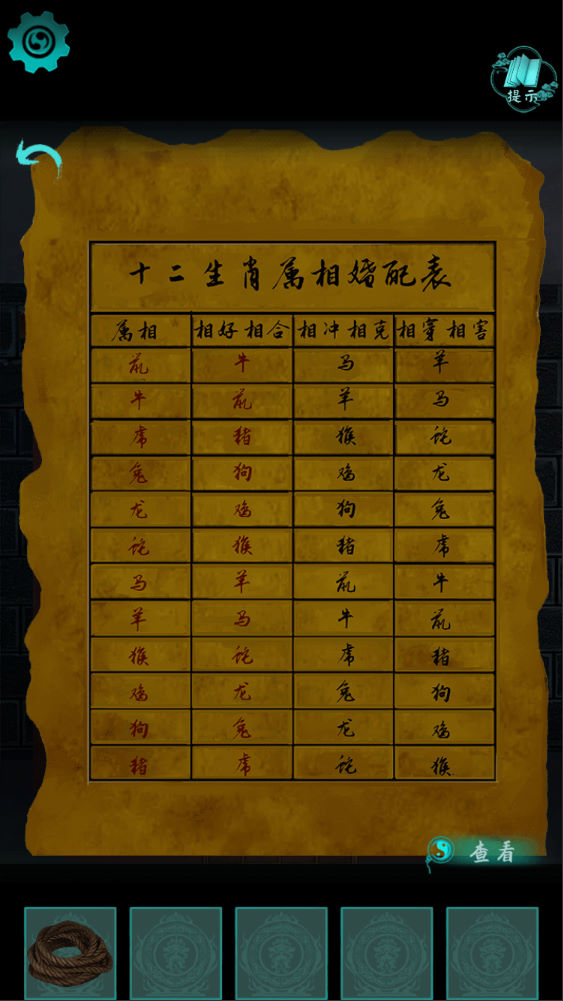 提示
十二生肖属相婚配表
属相 相好相合 相冲相克 相穿相害
鼠 牛 马 羊
牛 鼠 羊 马
虎 猪 猴 蛇
兔 狗 鸡 龙
龙 鸡 狗 兔
蛇 猴 猪 虎
马 羊 鼠 牛
羊 马 牛 鼠
猴 蛇 虎 猪
鸡 龙 兔 狗
狗 兔 龙 鸡
猪 虎 蛇 猴
查看